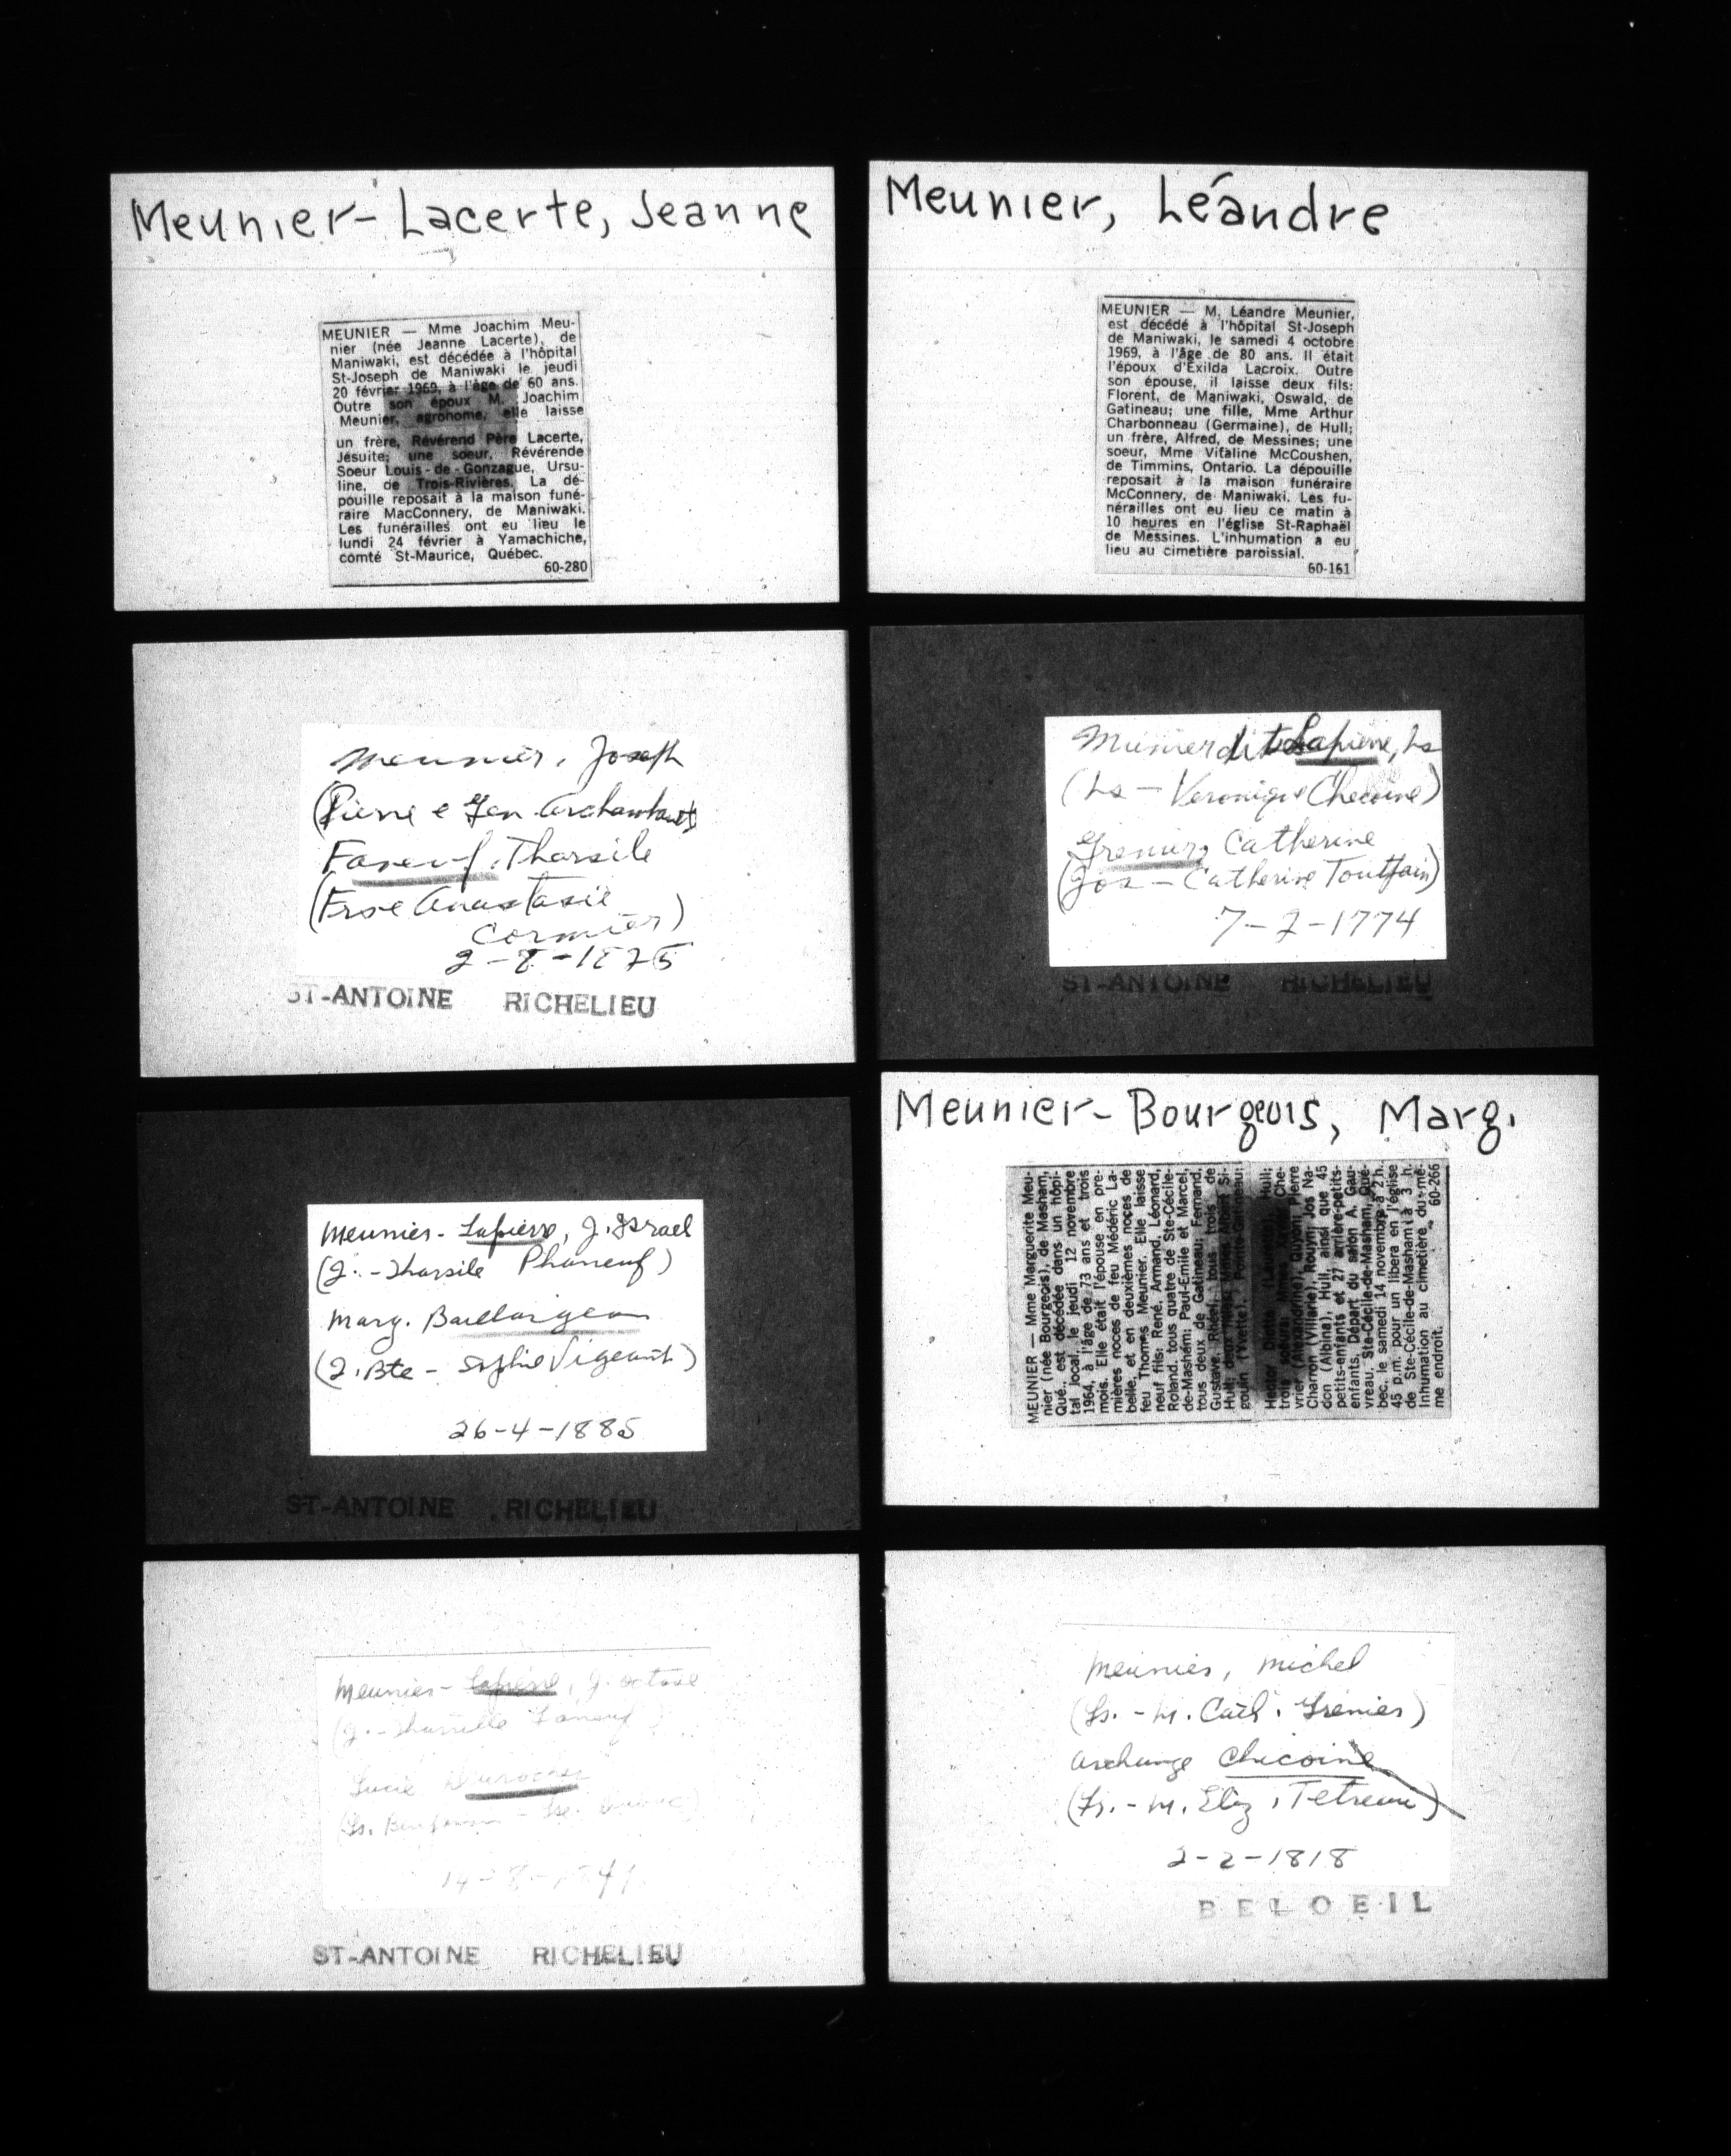 Meunier-Lacerte, Jeanne
MEUNIER — Mme Joachim Meu-
nier (née Jeanne Lacerte), de
Maniwaki, est décédée à l'hôpital
St-Joseph de Maniwaki le jeudi
20 février 1969, à l'âge de 60 ans.
Outre son époux M. Joachim
Meunier, agronome, elle laisse
un frère, Révérend Père Lacerte,
Jésuite; une soeur, Révérende
Soeur Louis-de-Gonzague, Ursu-
line, de Trois-Rivières. La dé-
pouille reposait à la maison funé-
raire MacConnery, de Maniwaki.
Les funérailles ont eu lieu le
lundi 24 février à Yamachiche,
comté St-Maurice, Québec.
60-280
Meunier, Léandre
MEUNIER — M. Léandre Meunier,
est décédé à l'hôpital St-Joseph
de Maniwaki, le samedi 4 octobre
1969, à l'âge de 80 ans. Il était
l'époux d'Exilda Lacroix. Outre
son épouse, il laisse deux fils:
Florent, de Maniwaki, Oswald, de
Gatineau; une fille, Mme Arthur
Charbonneau (Germaine), de Hull;
un frère, Alfred, de Messines; une
soeur, Mme Vitaline McCoushen,
de Timmins, Ontario. La dépouille
reposait à la maison funéraire
McConnery, de Maniwaki. Les fu-
nérailles ont eu lieu ce matin à
10 heures en l'église St-Raphaël
de Messines. L'inhumation a eu
lieu au cimetière paroissial.
60-161
Meunier, Joseph
(Pierre e Gen. Archambault)
Faneuf, Tharsile
(Frse Anastasie
Cormier)
ST-ANTOINE RICHELIEU
Meunier dit Lapierre, Ls
(Ls — Veronique Checoine)
Grenier, Catherine
(Jos — Catherine Toutfain)
7-2-1774
ST-ANTOINE RICHELIEU
Meunier-Lapierre, J. Israel
(J. - Tharsile Phaneuf)
Marg. Baillargeon
(J. Bte - Sophie Vigeant)
26-4-1885
ST-ANTOINE RICHELIEU
Meunier-Bourgeois, Marg.
MEUNIER — Mme Marguerite Meu-
nier (née Bourgeois), de Masham,
Qué., est décédée dans un hôpi-
tal local, le jeudi 12 novembre
1964, à l'âge de 73 ans et trois
mois. Elle était l'épouse en pre-
mières noces de feu Médéric La-
belle, et en deuxièmes noces de
feu Thomas Meunier. Elle laisse
neuf fils: René, Armand, Léonard,
Roland, tous quatre de Ste-Cécile-
de-Masham; Paul-Emile et Marcel,
tous deux de Gatineau; Fernand,
Gustave, Rhéal, tous trois de
Hull; deux Albert Si-
gouin (Yvette), Pointe-Gatineau;
Hector Hull;
trois soeurs, Mmes Che-
vrier (Alexandrine), Quyon; Pierre
Charron (Villarie), Rouyn; Jos Na-
don (Albina), Hull, ainsi que 45
petits-enfants et 27 arrière-petits-
enfants. Départ du salon A. Gau-
vreau, Ste-Cécile-de-Masham, Qué-
bec, le samedi 14 novembre à 2 h.
45 p.m. pour un libera en l'église
de Ste-Cécile-de-Masham à 3 h.
Inhumation au cimetière du mê-
me endroit.
60-266
Meunier-Lapierre, J. Octave
(J. - Tharsille Faneuf
Lucie Durocher
(Ls.
ST-ANTOINE RICHELIEU
Meunier, Michel
(Ls. - M. Cath. Grenier)
Archange Chicoine
(Fr. - M. Eliz. Tetreau)
2-2-1818
BELOEIL